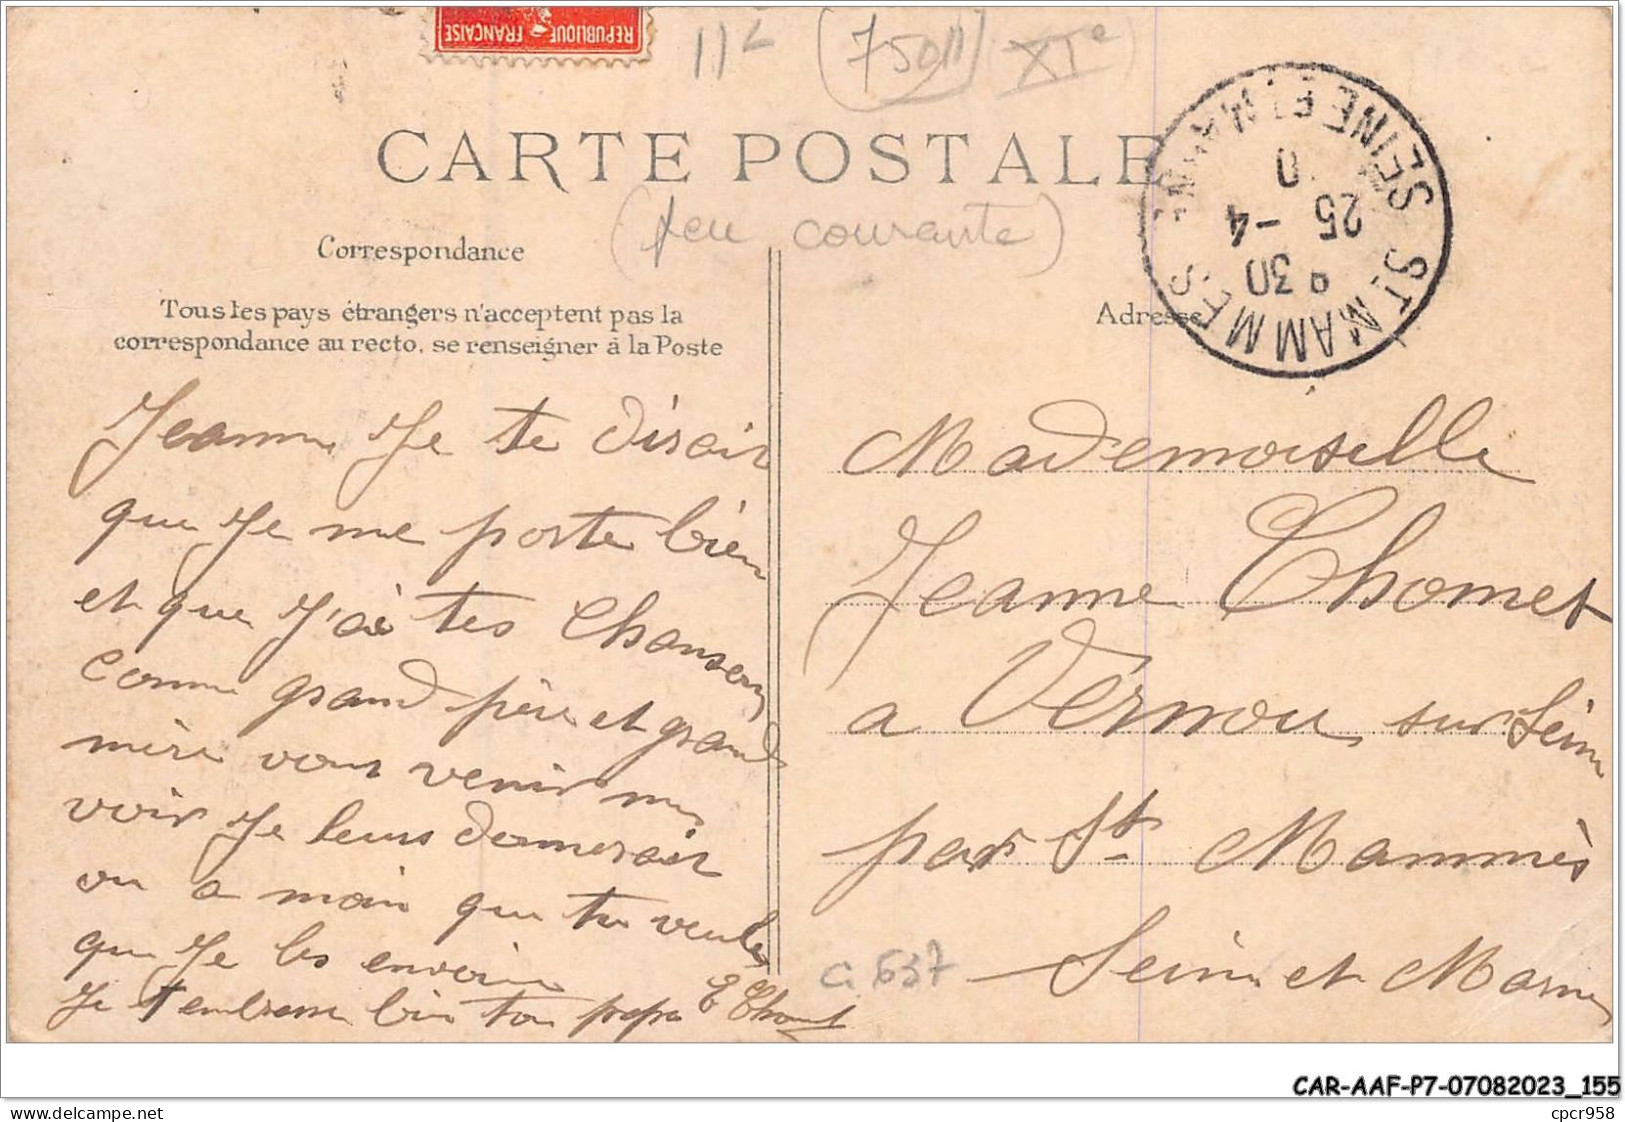 REPUBLIQUE FRANÇAISE
11e (75011) XIe
CARTE POSTALE
(peu courante)
SEINE ET MARNE
ST MAMMES
9 30
25 -4
10
Correspondance
Tous les pays étrangers n'acceptent pas la
correspondance au recto, se renseigner à la Poste
Adresse
Jeanne Je te disais
que Je me porte bien
et que J'ai tes Chansons
comme grand père et grand
mère vous venir me
voir Je leurs donnerais
ou a moin que tu veule
que Je les envoie
Je t'embrasse bien ton papa E Chomet
Mademoiselle
Jeanne Chomet
a Vernou sur Seine
par St Mammès
Seine et Marne
C. 637
CAR-AAF-P7-07082023_155
delcampe.net
cpcr958